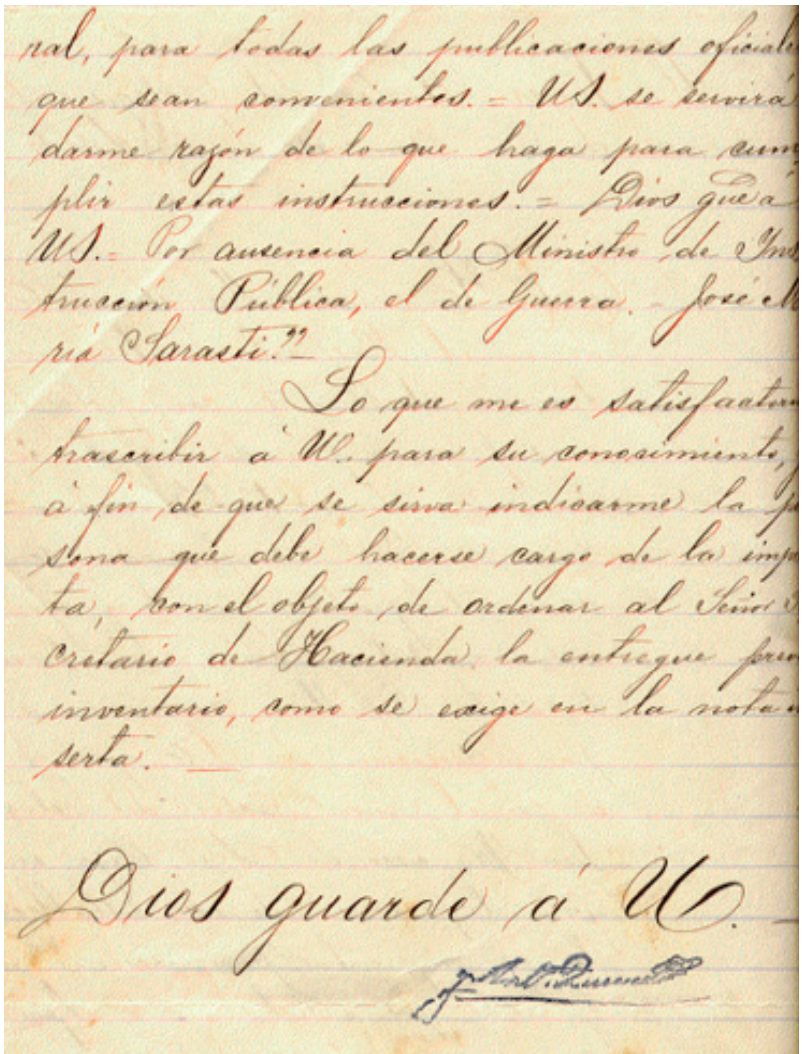 ral, para todas las publicaciones oficiale
que sean convenientes. = US. se servirá
darme razón de lo que haga para cum
plir estas instrucciones. = Dios gue á
US. = Por ausencia del Ministro de Ins
trucción Pública, el de Guerra. - José M
ría Sarasti."-
Lo que me es satisfactor
trascribir á U. para su conocimiento,
á fin de que se sirva indicarme la p
sona que debe hacerse cargo de la imp
ta, con el objeto de ordenar al Señor S
cretario de Hacienda la entregue prev
inventario, como se exige en la nota i
serta. —
Dios guarde á U. -